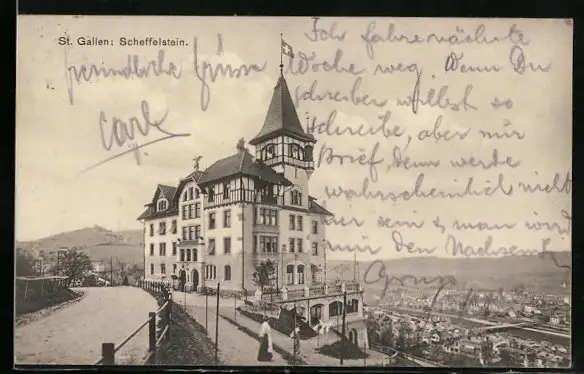 St. Gallen: Scheffelstein.
Ich fahre nächste
Woche weg. Wenn Du
schreiben willst so
schreibe, aber nur
Brief, denn werde
wahrscheinlich nicht
hier sein & man wird
mir den nachsenden
Gruss
freundliche Grüsse
Carl